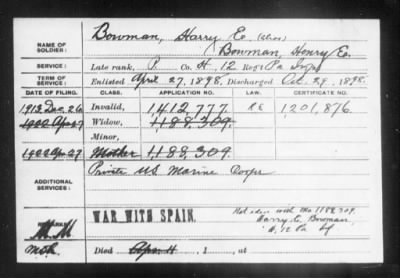 Bowman, Harry E. (alias)
NAME OF SOLDIER: Bowman, Henry E.
SERVICE: Late rank, P. Co. H, 12 Reg't Pa Inf
TERM OF SERVICE: Enlisted April 27, 1898, Discharged Oct. 29, 1898.
DATE OF FILING. CLASS. APPLICATION NO. LAW. CERTIFICATE NO.
1913 Dec. 26 Invalid, 1,412,777. 1,201,876
Widow, 1,188,309.
Minor,
Mother 1,188,309.
ADDITIONAL SERVICES: Private US Marine Corps
WAR WITH SPAIN.
Not iden with No. 1188309.
Harry C. Bowman.
H. 12 Pa Inf
Died 1, at